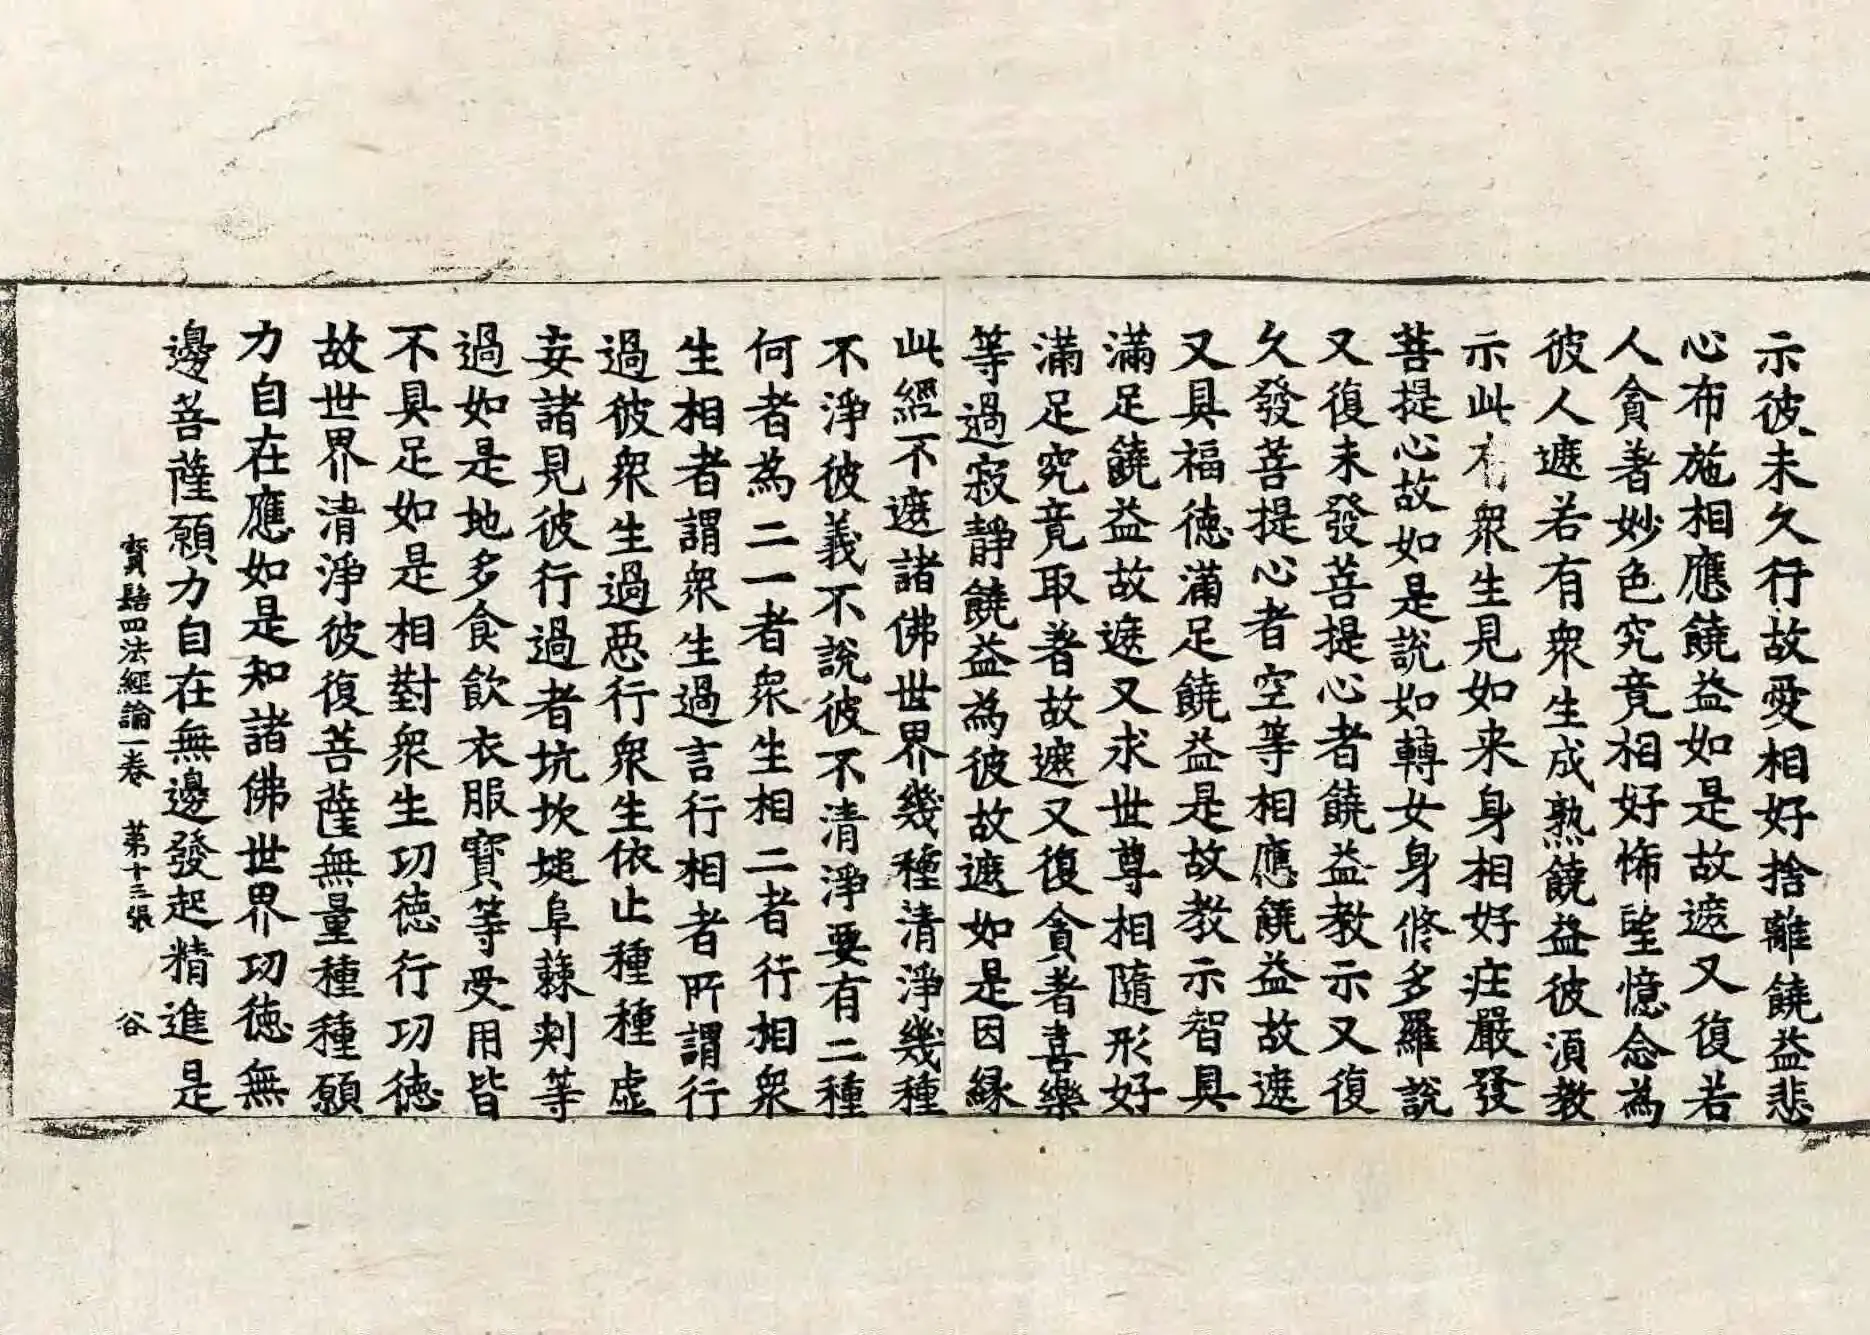 示彼未久行故愛相好捨離饒益悲
心布施相應饒益如是故遮又復若
人貪著妙色究竟相好悕望憶念為
彼人遮若有衆生成熟饒益彼湏教
示此有衆生見如来身相好庄嚴發
菩提心故如是說如轉女身修多羅說
又復未發菩提心者饒益教示又復
久發菩提心者空等相應饒益故遮
又具福德滿足饒益是故教示智具
滿足饒益故遮又求世尊相隨形好
滿足究竟取著故遮又復貪著喜樂
等過寂靜饒益為彼故遮如是因緣
此經不遮諸佛世界幾種清淨幾種
不淨彼義不說彼不清淨要有二種
何者為二一者衆生相二者行相衆
生相者謂衆生過言行相者所謂行
過彼衆生過惡行衆生依止種種虛
妄諸見彼行過者坑坎塠阜蕀刾等
過如是地多食飲衣服寶等受用皆
不具足如是相對衆生功德行功德
故世界清淨彼復菩薩無量種種願
力自在應如是知諸佛世界功德無
邊菩薩願力自在無邊發起精進是
寶髻四法經論一卷 第十三張 谷